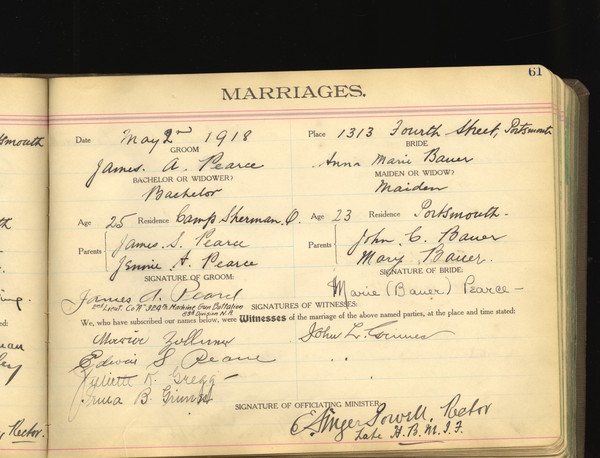 61
MARRIAGES.
Date May 2nd 1918
Place 1313 Fourth Street, Portsmouth
GROOM
BRIDE
James. A. Pearce
Anna Marie Bauer
BACHELOR OR WIDOWER?
MAIDEN OR WIDOW?
Bachelor
Maiden
Age 25 Residence Camp Sherman, O.
Age 23 Residence Portsmouth.
Parents James S. Pearce
Jennie A. Pearce
Parents John C. Bauer
Mary Bauer.
SIGNATURE OF GROOM:
SIGNATURE OF BRIDE:
James A. Pearce
Marie (Bauer) Pearce
2nd Lieut. Co 329th Machine Gun Battalion
83rd Division N.A.
SIGNATURES OF WITNESSES:
We, who have subscribed our names below, were Witnesses of the marriage of the above named parties, at the place and time stated:
Edwin S Pearce
John L. Grimes
Juliette K. Gregg
B. Grimes
SIGNATURE OF OFFICIATING MINISTER:
Powell, Rector
Late H. B. M. I. F.